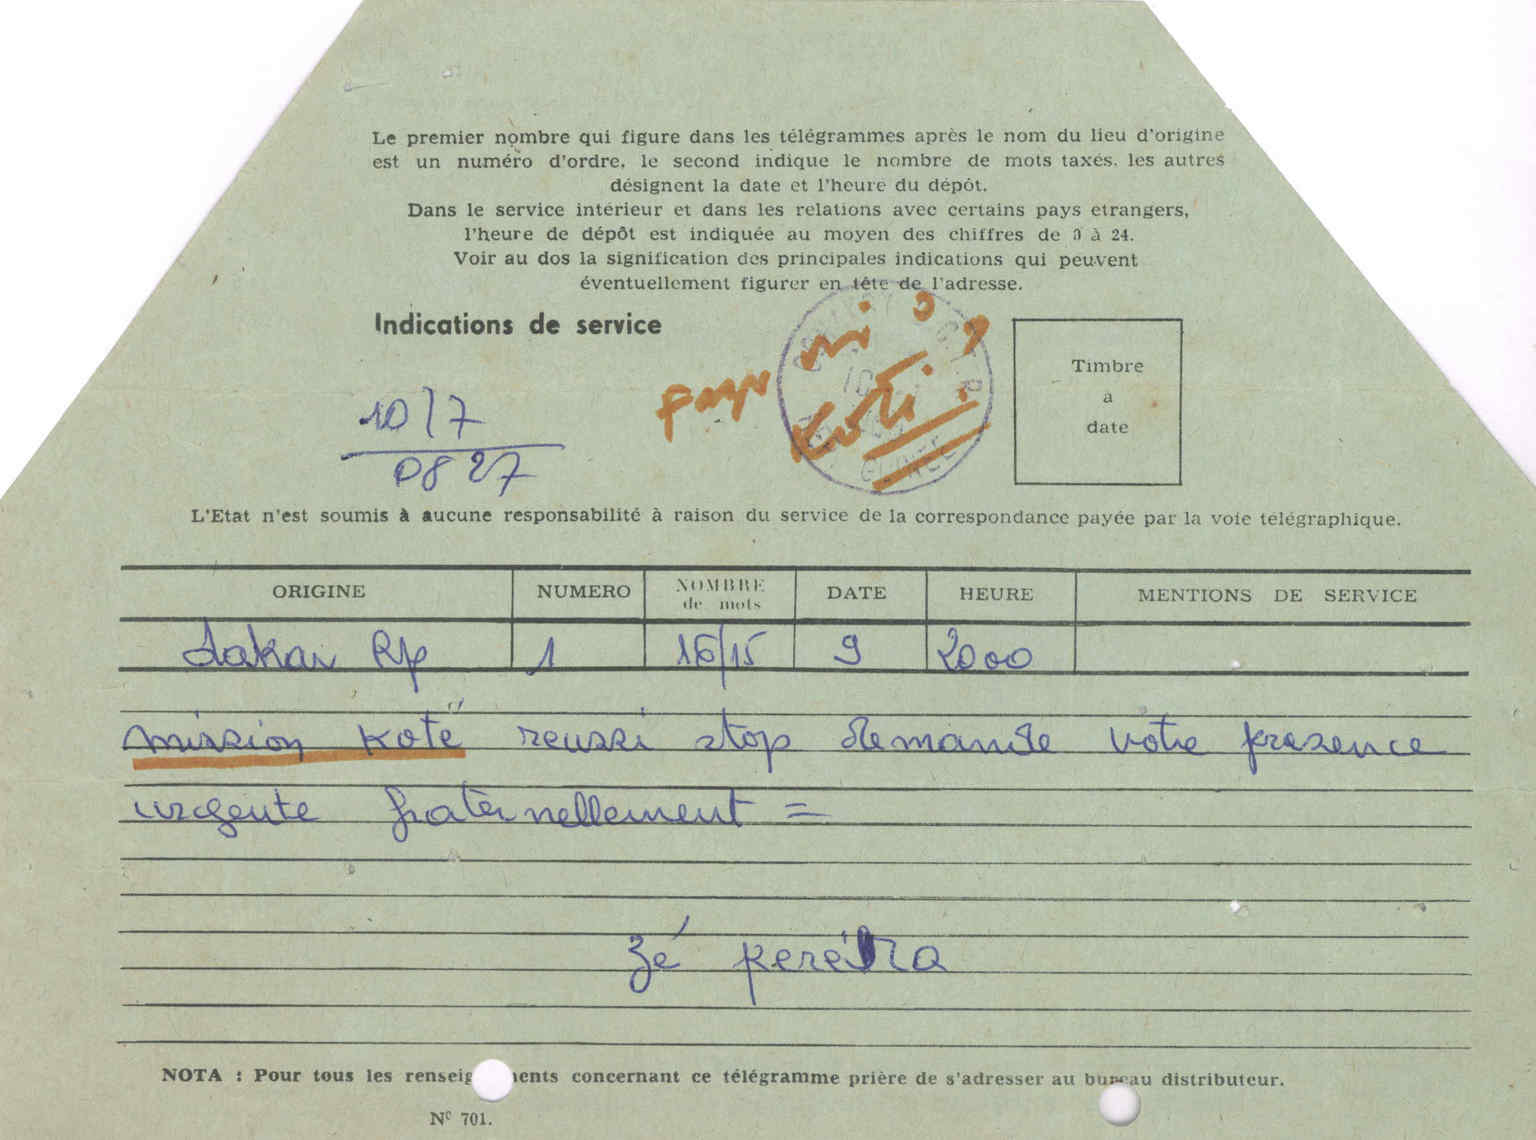 Le premier nombre qui figure dans les télégrammes après le nom du lieu d'origine
est un numéro d'ordre, le second indique le nombre de mots taxés, les autres
désignent la date et l'heure du dépôt.
Dans le service intérieur et dans les relations avec certains pays etrangers,
l'heure de dépôt est indiquée au moyen des chiffres de 0 à 24.
Voir au dos la signification des principales indications qui peuvent
éventuellement figurer en tête de l'adresse.
Indications de service
10/7
0827
Koté
GUINEE
Timbre
à
date
L'Etat n'est soumis à aucune responsabilité à raison du service de la correspondance payée par la voie télégraphique.
ORIGINE NUMERO NOMBRE de mots DATE HEURE MENTIONS DE SERVICE
dakar Rp 1 16/15 9 2000
mission koté reussi stop demande votre presence
urgente fraternellement =
zé pereira
NOTA : Pour tous les concernant ce télégramme prière de s'adresser au bureau distributeur.
N° 701.